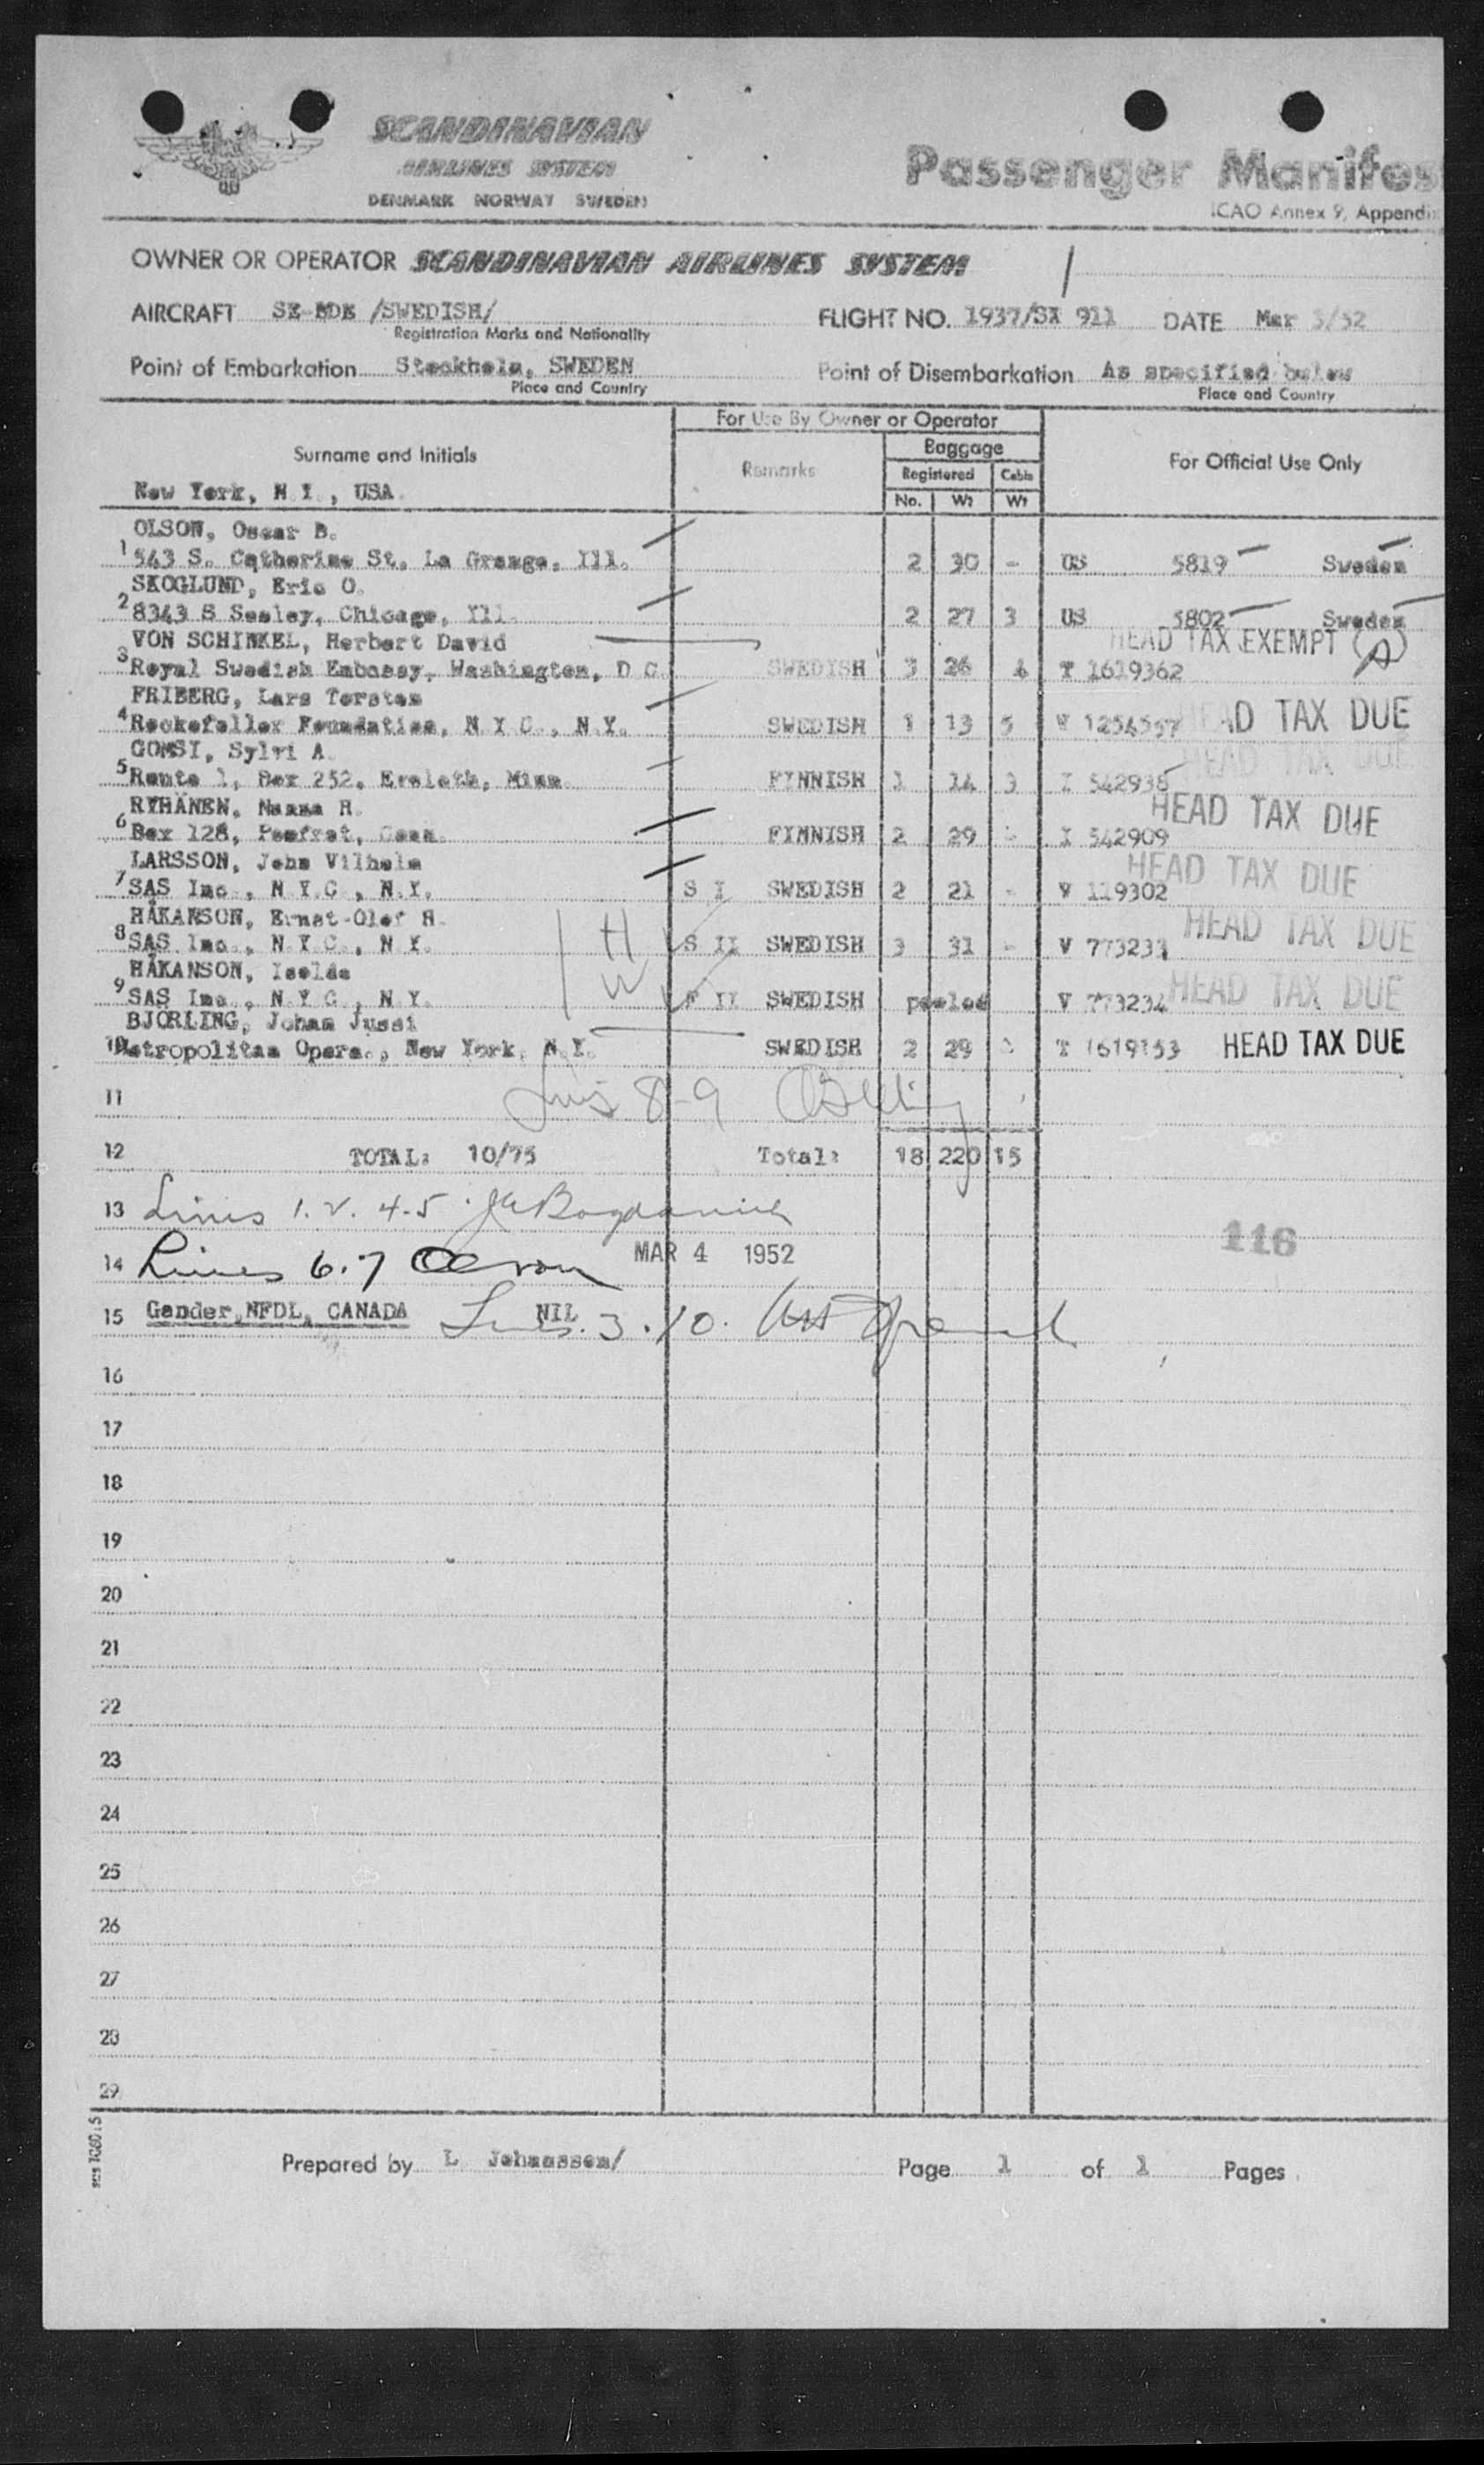 SCANDINAVIAN
AIRLINES SYSTEM
DENMARK NORWAY SWEDEN
Passenger Manifes
ICAO Annex 9, Appendi
OWNER OR OPERATOR SCANDINAVIAN AIRLINES SYSTEM
AIRCRAFT SE-BDK /SWEDISH/ FLIGHT NO. 1937/SK 911 DATE Mar 3/52
Registration Marks and Nationality
Point of Embarkation Stockholm, SWEDEN Point of Disembarkation As specified below
Place and Country Place and Country
For Use By Owner or Operator
Surname and Initials Remarks Baggage For Official Use Only
Registered Cabin
New York, N.Y., USA. No. Wt Wt
OLSON, Oscar B.
1 543 S. Catherine St, La Grange, Ill. 2 30 - US 5819 Sweden
SKOGLUND, Eric O.
2 8343 S Seeley, Chicago, Ill. 2 27 3 US 5802 Sweden
VON SCHINKEL, Herbert David HEAD TAX EXEMPT (A)
3 Royal Swedish Embassy, Washington, D C. SWEDISH 3 26 4 T 1619362
FRIBERG, Lars Torsten
4 Rockefeller Foundation, N Y C., N.Y. SWEDISH 1 13 5 V 1254557 HEAD TAX DUE
GOMSI, Sylvi A. HEAD TAX DUE
5 Route 1, Box 252, Eveleth, Minn. FINNISH 1 14 3 I 542938
RYHÄNEN, Naama H. HEAD TAX DUE
6 Box 128, Pomfret, Conn. FINNISH 2 29 - I 542909
LARSSON, John Vilhelm HEAD TAX DUE
7 SAS Inc., N.Y.C., N.Y. S I SWEDISH 2 21 - V 119302
HÅKANSON, Ernst-Olof H. HEAD TAX DUE
8 SAS Inc., N.Y.C., N.Y. H S II SWEDISH 3 31 - V 773233
HÅKANSON, Isolde
9 SAS Inc., N.Y.C., N.Y. W F II SWEDISH pooled V 773234 HEAD TAX DUE
BJÖRLING, Johan Jussi
10 Metropolitan Opera., New York, N.Y. SWEDISH 2 29 T 1619153 HEAD TAX DUE
11 Lines 8-9
12 TOTAL: 10/75 Total: 18 220 15
13 Lines 1. 2. 4-5
116
14 Lines 6.7 MAR 4 1952
15 Gander, NFDL, CANADA NIL Lines. 3. 10.
16
17
18
19
20
21
22
23
24
25
26
27
28
29
Prepared by L Johansson/ Page 1 of 1 Pages